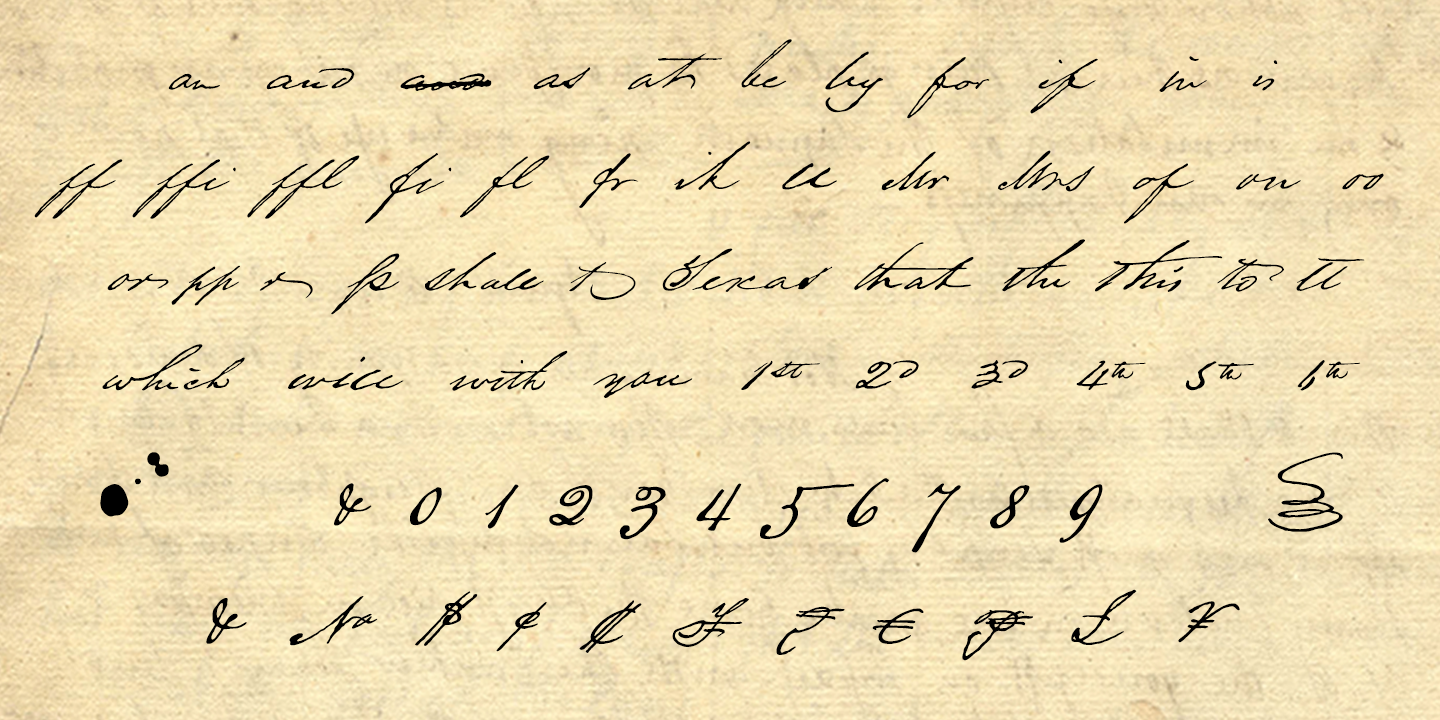 an and and as at be by for if in is
ff ffi ffl fi fl fr ik ll Mr Mrs of on oo
or pp r ss shall t Texas that the this to tt
which will with you 1st 2d 3d 4th 5th 6th
& 0 1 2 3 4 5 6 7 8 9
& No $ ¢ ₡ ₣ € ₱ £ ¥